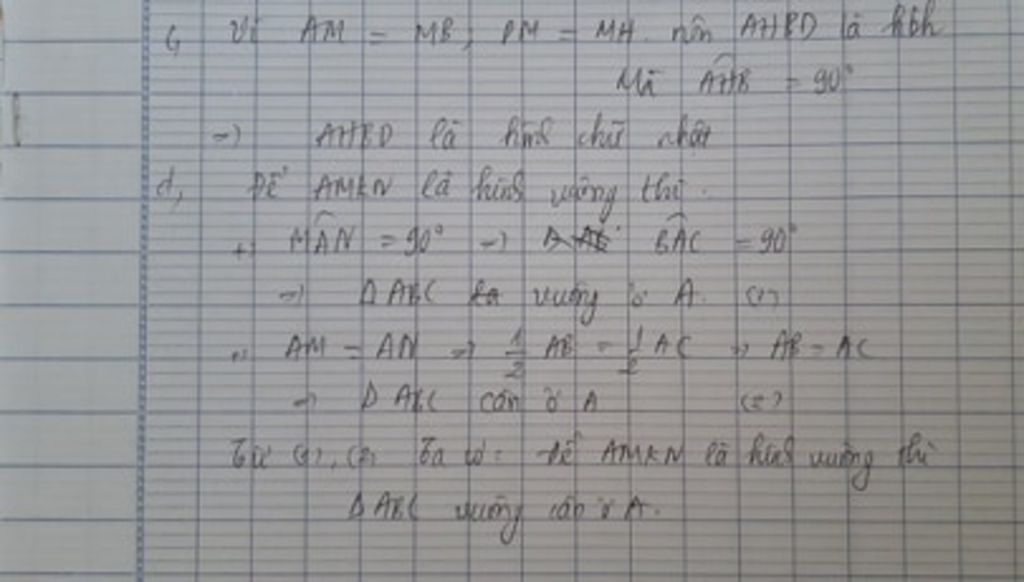 c, Vì AM = MB, DM = MH nên AHBD là hbh
Mà AHB = 90°
=> AHBD là hình chữ nhật
d, Để AMKN là hình vuông thì
+) MAN = 90° => BAC = 90°
=> Δ ABC vuông ở A. (1)
+) AM = AN => 1/2 AB = 1/2 AC => AB = AC
=> Δ ABC cân ở A (2)
Từ (1), (2) ta có: Để AMKN là hình vuông thì
Δ ABC vuông cân ở A.